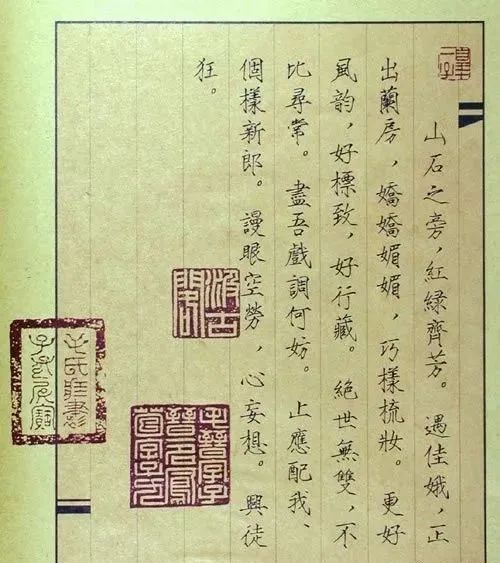 山石之旁,紅緑齊芳。遇佳娥,正
出蘭房,嬌嬌媚媚,巧樣梳妝。更好
風韵,好標致,好行藏。絕世無雙,不
比尋常。盡吾戲調何妨。止應配我、
個樣新郎。謾眼空勞,心妄想。興徒
狂。
汲古
閣